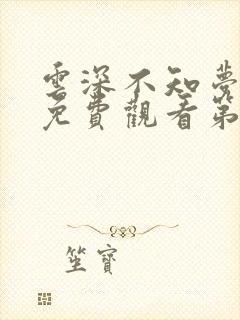 雲深不知夢
免費觀看第
坐寶